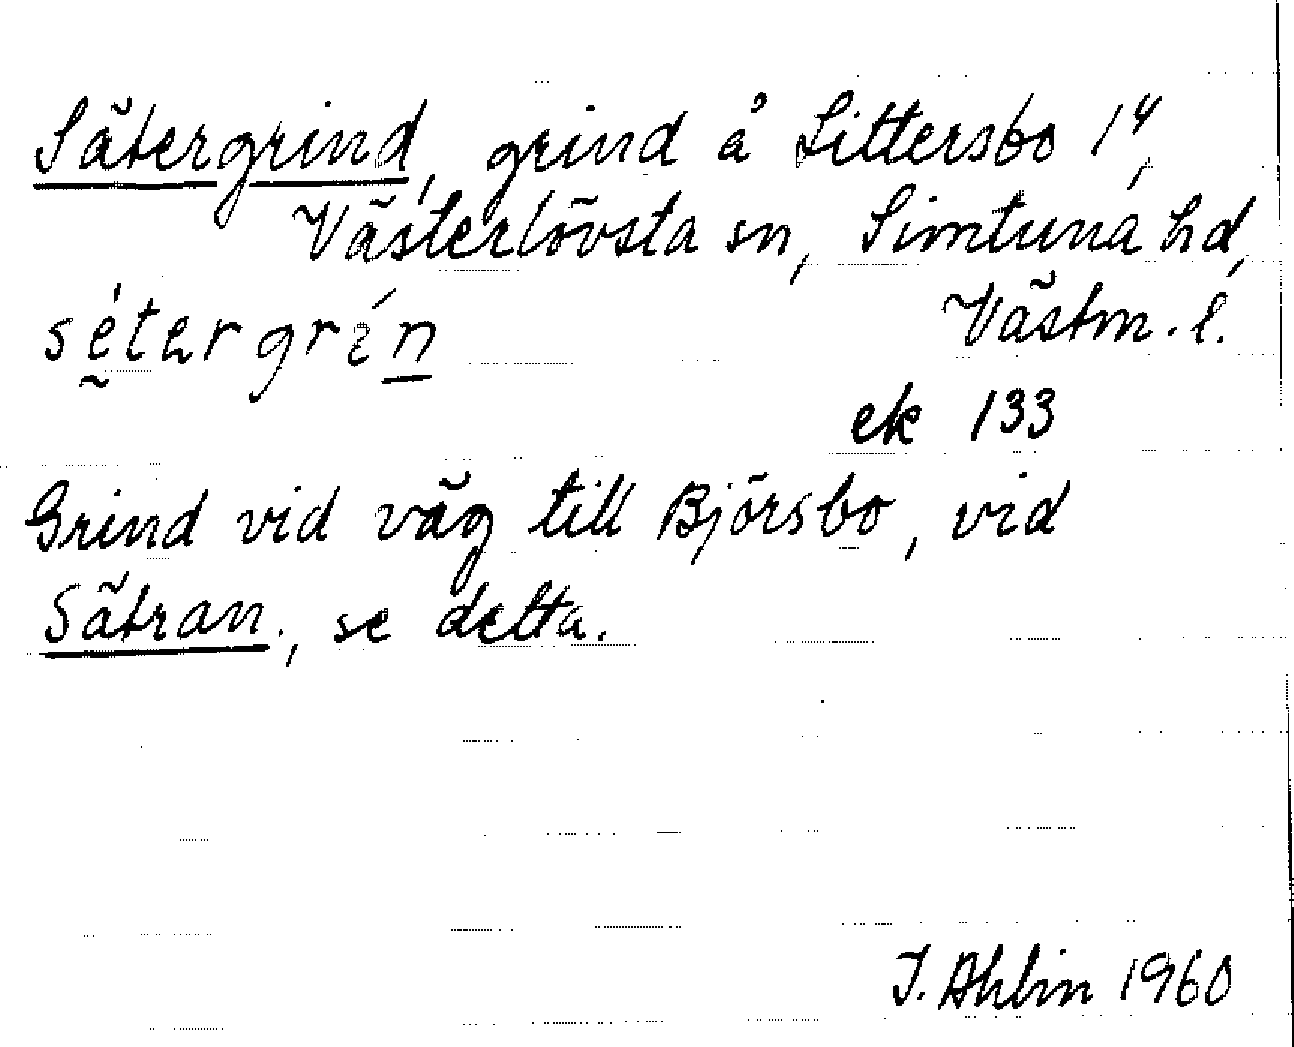 Sätergrind, grind å Sittersbo 1⁴,
Västerlövsta sn, Simtuna hd,
sétergrín Västm. l.
ek 133
Grind vid väg till Björsbo, vid
Sätran., se detta.
I. Ahlin 1960